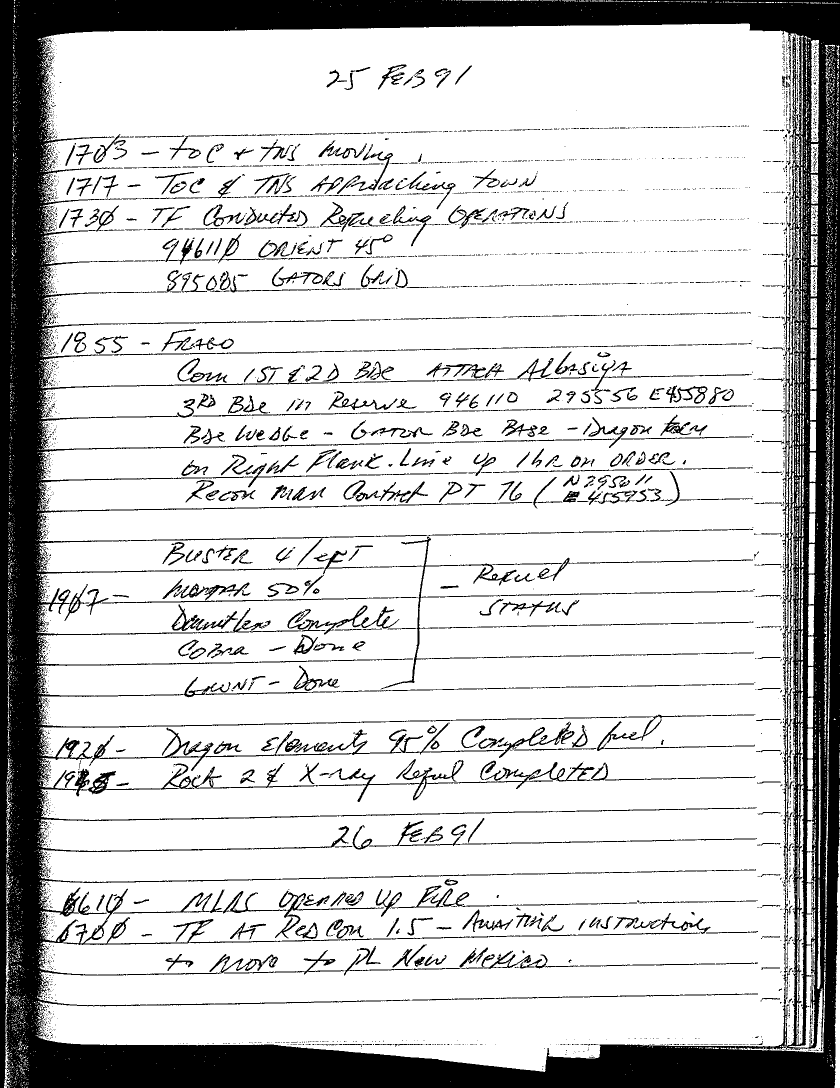 25 FEB 91
17Ø3 - TOC & TNS moving.
1717 - TOC & TNS Approaching town
173Ø - TF Conducted Refueling Operations
94611Ø ORIENT 45°
895085 GATORS GRID
1855 - FRAGO
Com 1ST & 2D Bde ATTACH Albasiya
3RD Bde in Reserve 946110 295556 E455880
Bde Wedge - GATOR Bde BASE - Dragon
on Right Flank. Line up 1hr on ORDER.
Recon man Contact PT 76 (N295011
E455953)
BUSTER 4/ept
19Ø7 - mortar 50%
Dauntless Complete
Cobra - Done
GRUNT - Done
- Refuel
STATUS
192Ø - Dragon Elements 95% Completed fuel.
Rock 2 & X-ray Refuel Completed
26 FEB 91
Ø61Ø - MLRS opened up Fire.
Ø7ØØ - TF AT RedCon 1.5 - Awaiting instructions
to move to PL New Mexico.